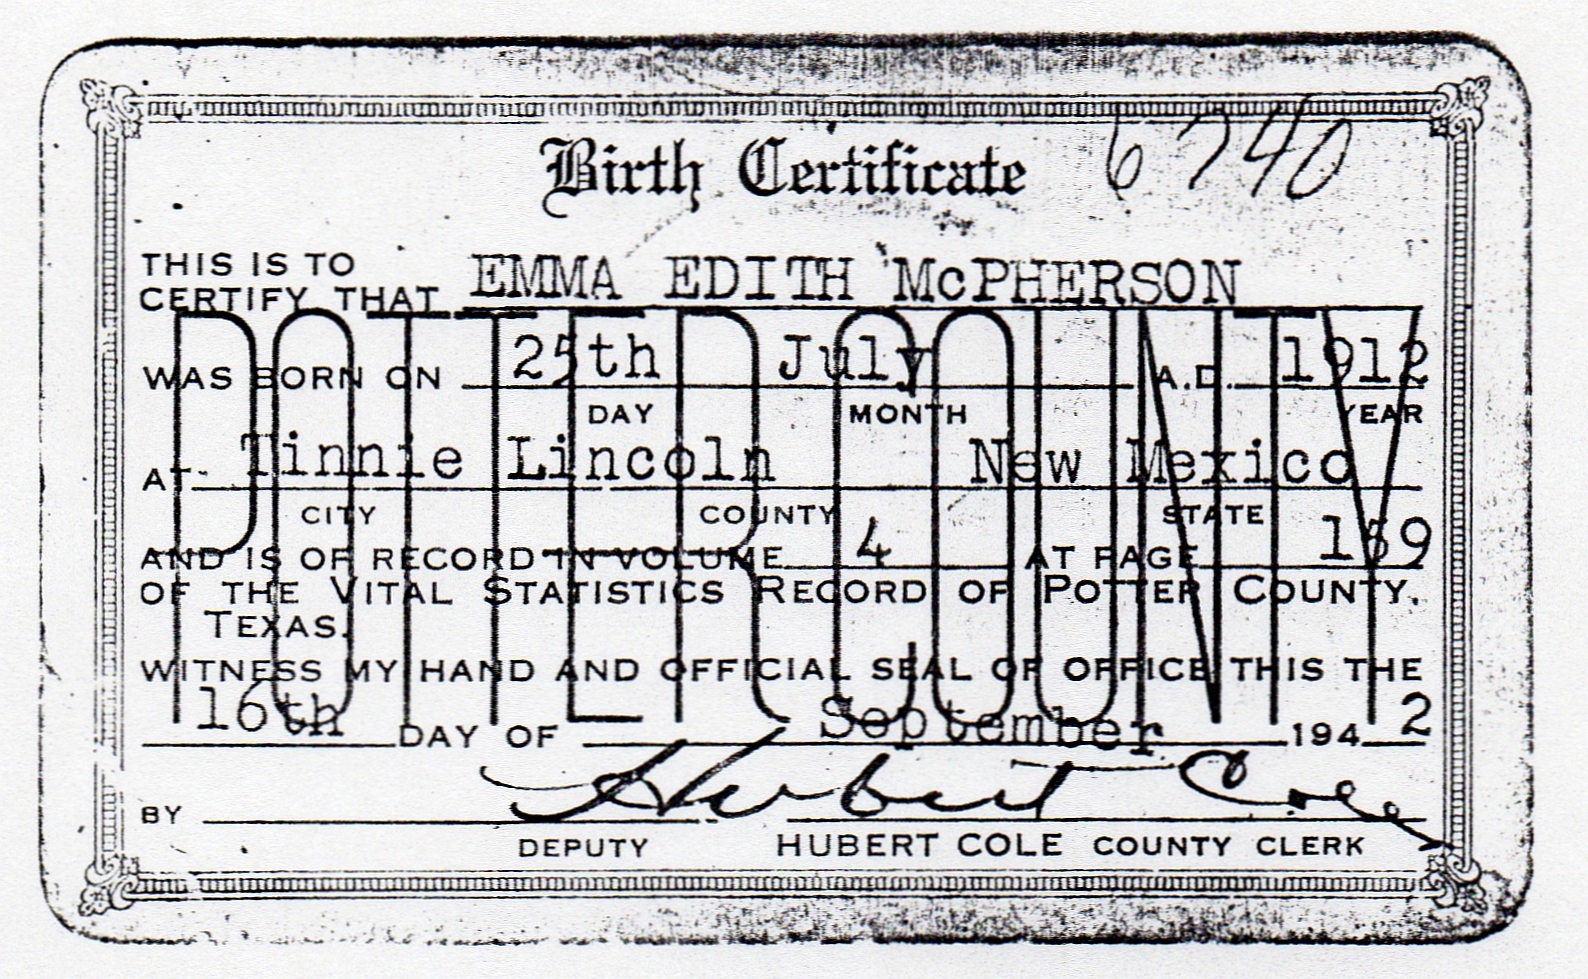 Birth Certificate 6740
THIS IS TO
CERTIFY THAT EMMA EDITH McPHERSON
WAS BORN ON 25th July A.D. 1912
DAY MONTH YEAR
AT Tinnie Lincoln New Mexico
CITY COUNTY STATE
AND IS OF RECORD IN VOLUME 4 AT PAGE 159
OF THE VITAL STATISTICS RECORD OF POTTER COUNTY,
TEXAS.
POTTER COUNTY
WITNESS MY HAND AND OFFICIAL SEAL OF OFFICE THIS THE
16th DAY OF September 1942
BY Hubert Cole
DEPUTY HUBERT COLE COUNTY CLERK